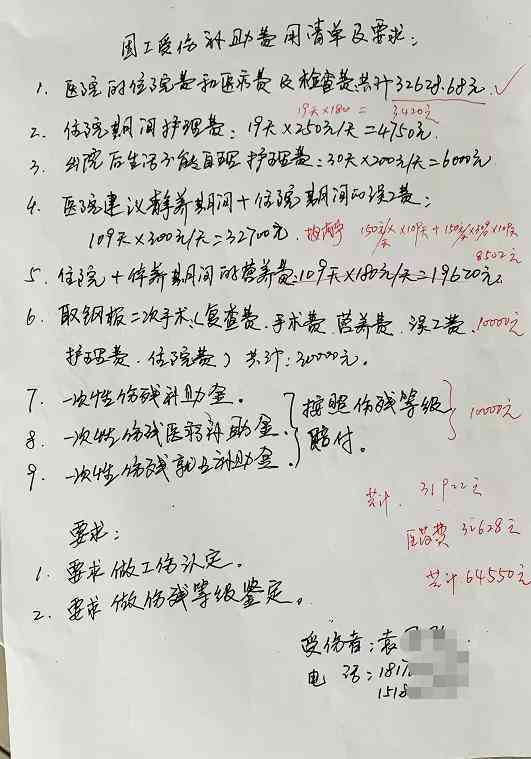 因工受伤补助费用清单及要求:
1. 医院的住院费和医疗费及检查费共计32628.68元. ✓
19天×180 = 3420元
2. 住院期间护理费: 19天×250元/天=4750元.
3. 出院后生活不能自理护理费: 30天×200元/天=6000元
4. 医院建议静养期间+住院期间的误工费:
109天×300元/天=32700元.
150元/天×109天+150元/天×
8502元
5. 住院+停养期间的营养费: 109天×180元/天=19620元.
6. 取钢板二次手术(复查费、手术费、营养费、误工费、 10000元
护理费、住院费) 共计: 30000元.
7. 一次性伤残补助金.
8. 一次性伤残医疗补助金. 按照伤残等级 10000元
9. 一次性伤残就业补助金. 赔付.
共计. 31922元
要求: 医药费 32628元
1. 要求做工伤认定. 共计64550元
2. 要求做伤残等级鉴定.
受伤者: 袁
电 话: 181
1518